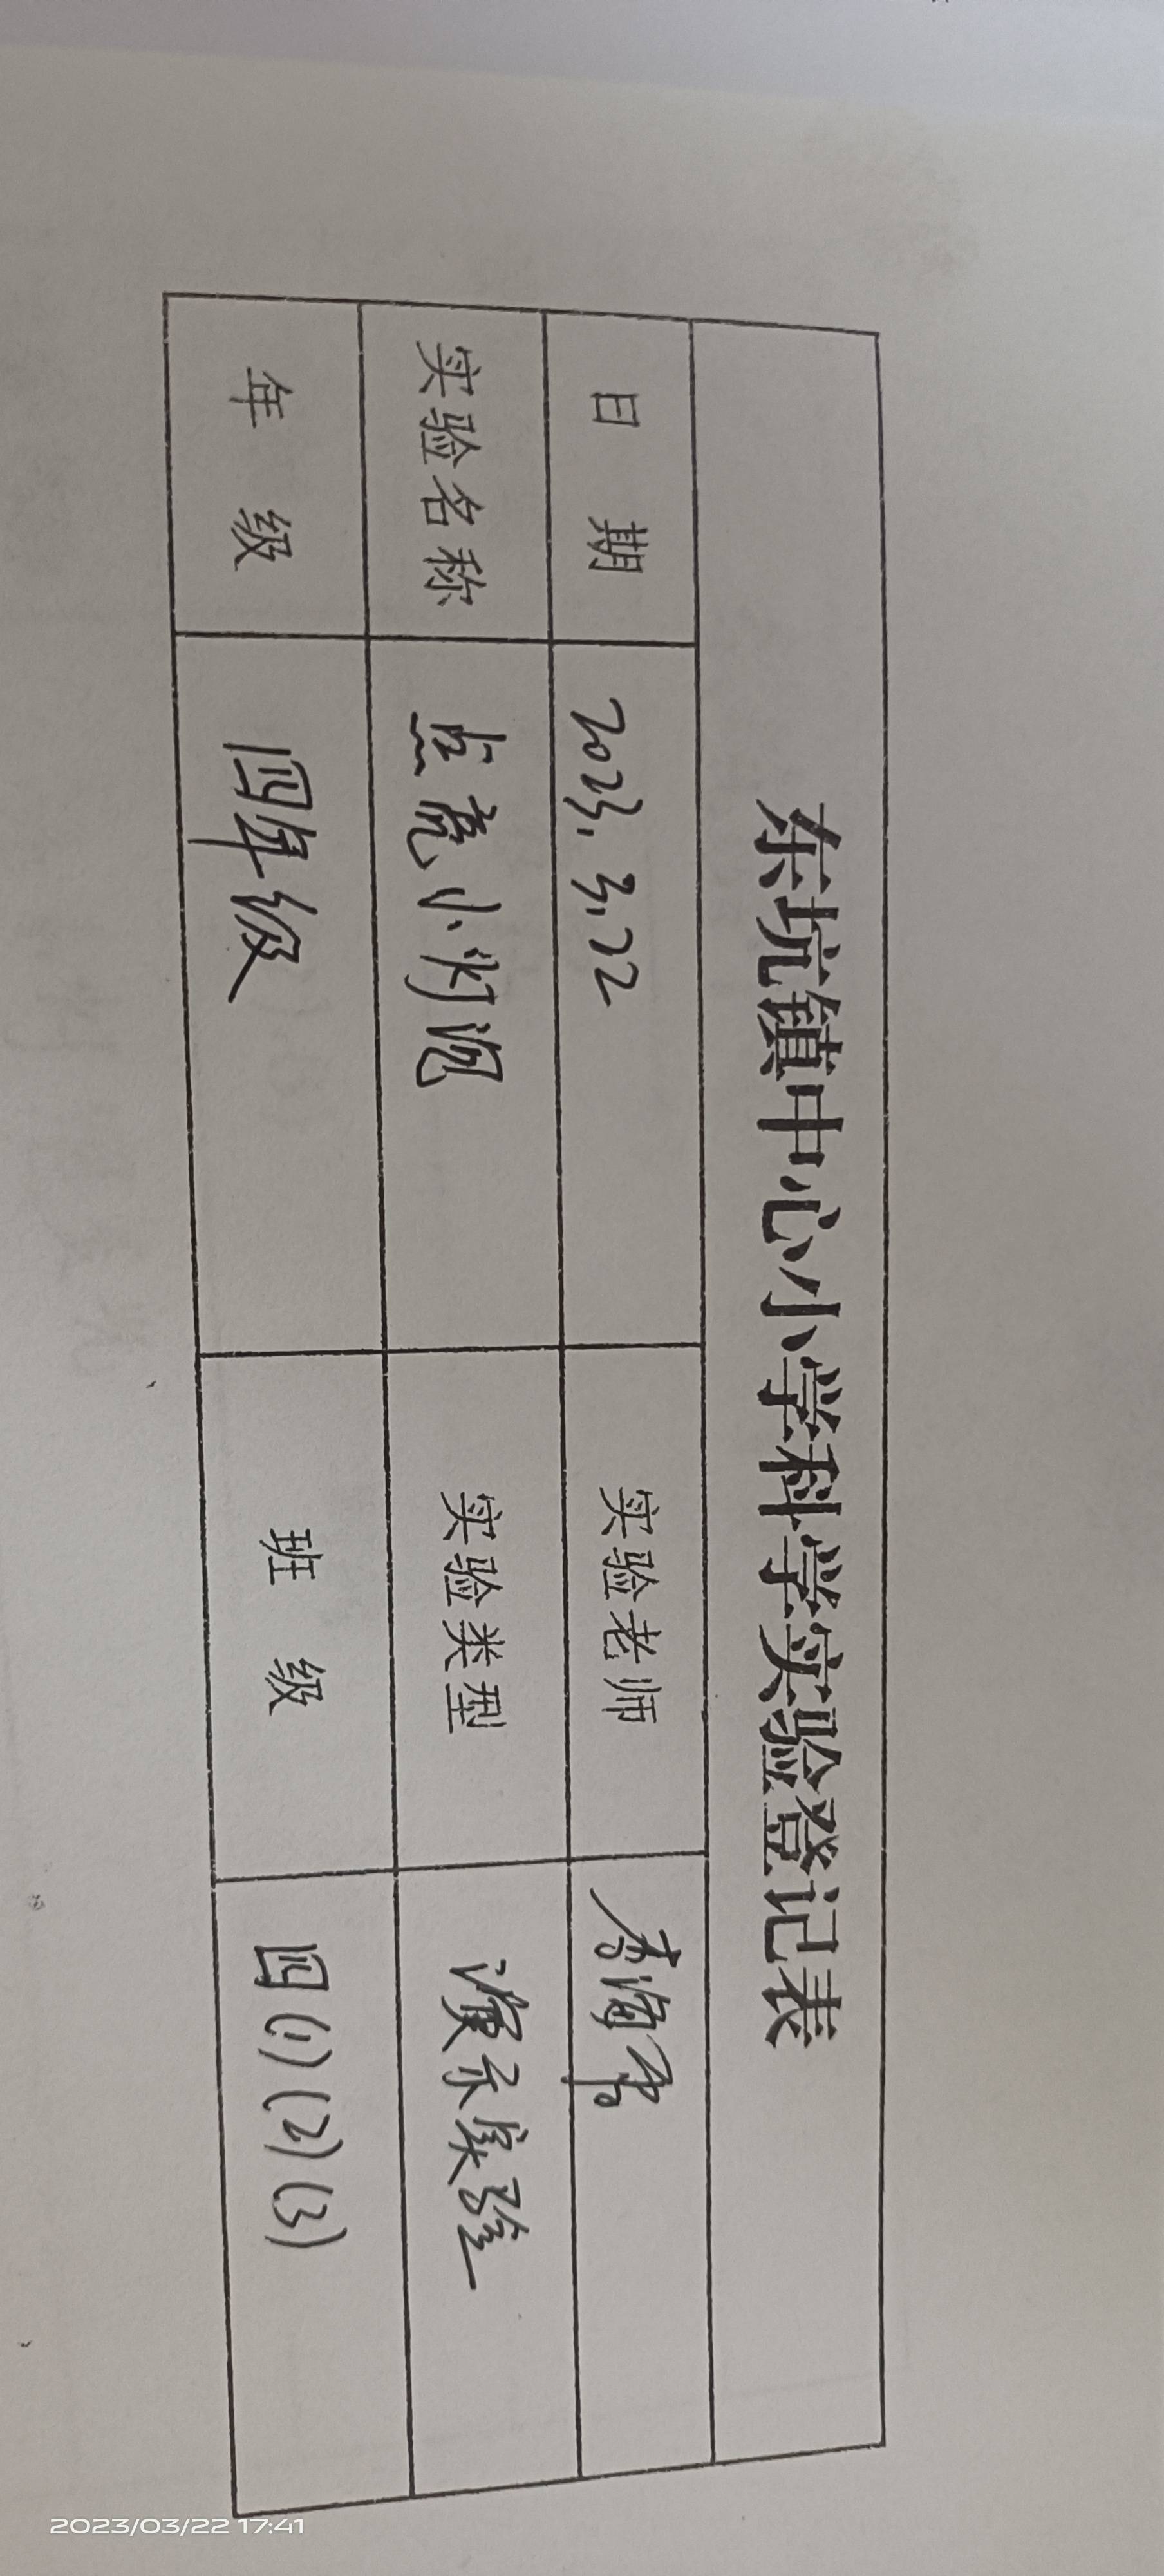 东坑镇中心小学科学实验登记表
日 期 2023.3.22 实验老师 李海军
实验名称 点亮小灯泡 实验类型 演示实验
年 级 四年级 班 级 四(1)(2)(3)
2023/03/22 17:41